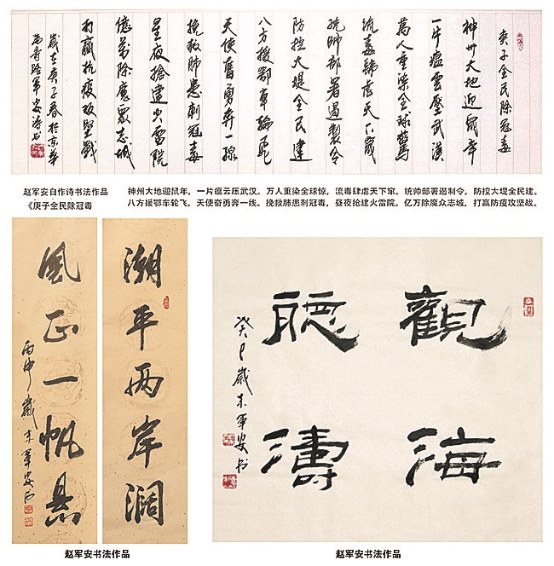 庚子全民除冠毒
神州大地迎鼠年
一片瘟雲壓武漢
萬人重染全球驚
流毒肆虐天下
統帥部署遏製令
防控大堤全民建
八方援鄂車輪飛
天使奮勇奔一線
挽救肺患刺冠毒
星夜搶建火雷院
億萬除魔衆志城
打贏抗疫攻堅戰
歲在庚子春於京華
軍安詩書
赵军安自作诗书法作品
《庚子全民除冠毒
神州大地迎鼠年，一片瘟云压武汉。万人重染全球惊，流毒肆虐天下家。统帅部署遏制令，防控大堤全民建。
八方援鄂车轮飞，天使奋勇奔一线。挽救肺患刺冠毒，昼夜抢建火雷院。亿万除魔众志城，打赢防疫攻坚战。
潮平两岸濶
風正一帆懸
丙申歲末軍安書
觀海
聽濤
癸巳歲末軍安書
赵军安书法作品
赵军安书法作品